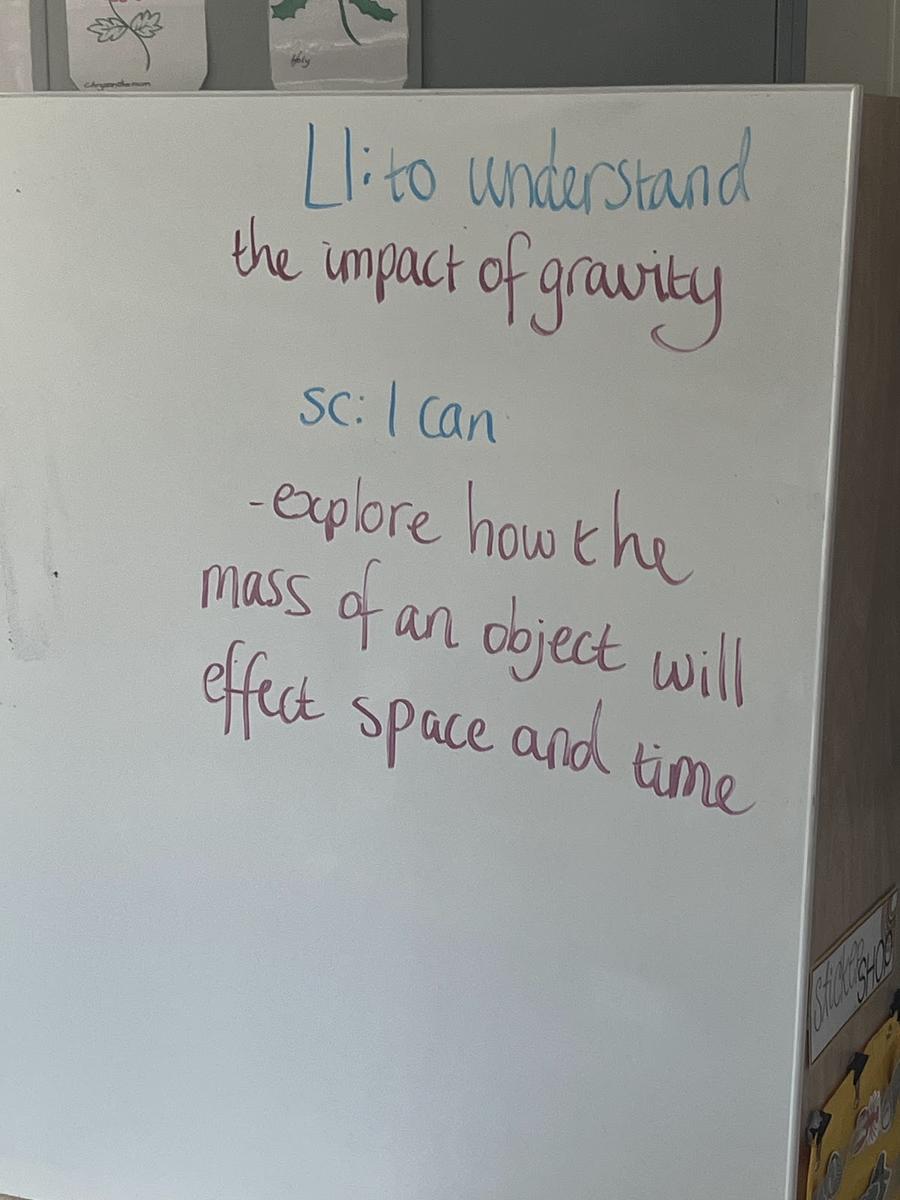 Chrysanthemum
Holly
LI: to understand
the impact of gravity
SC: I can
-explore how the
mass of an object will
effect space and time
sticker
SHOP